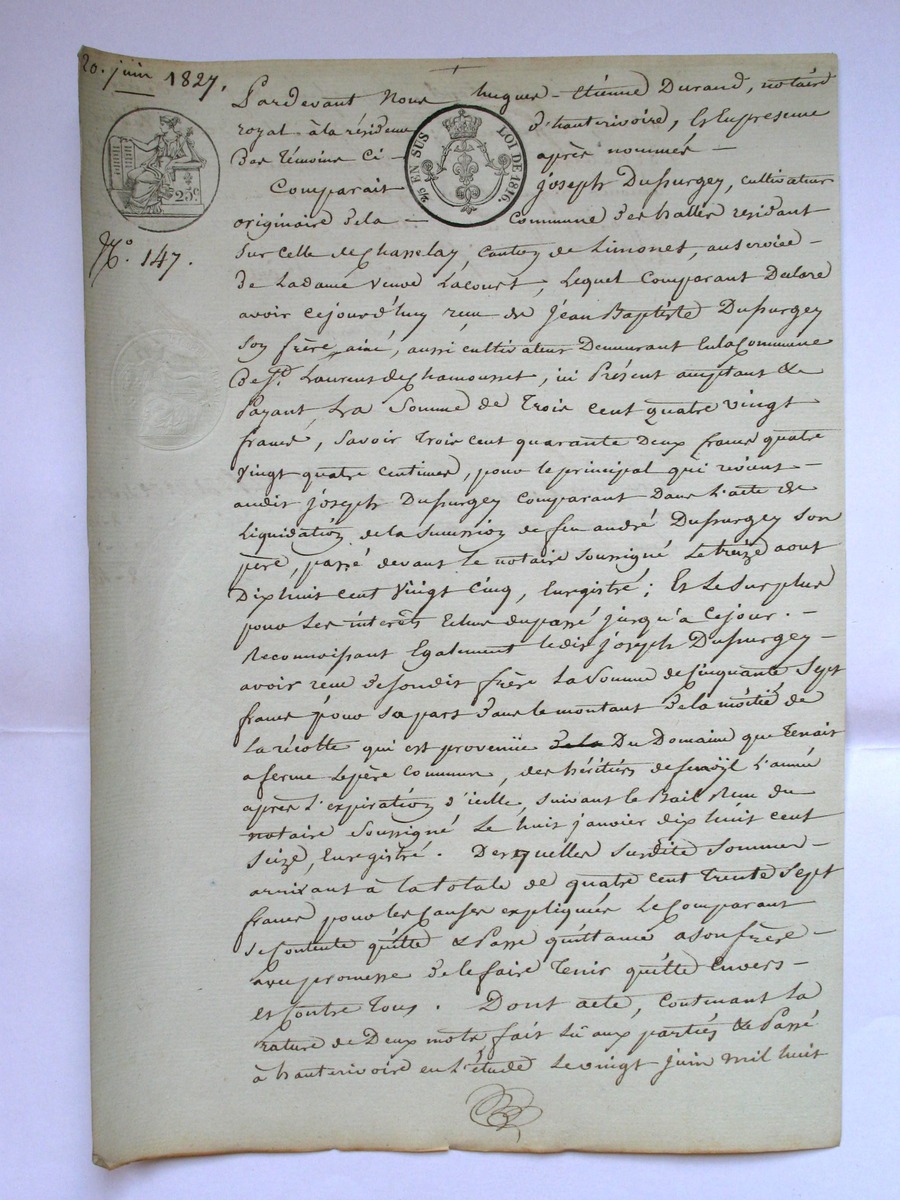 20. juin 1827.
Pardevant Nous hugues-étienne Durand, notaire
royal à la résidence d'hauterivoire, Et En presence
Des Témoins Ci- après nommés -
EN SUS
LOI DE 1816.
25c
Comparait joseph Dupurgey, cultivateur
originaire de la - Commune des halles residant
Sur Celle de Chasselay, Canton de Limonet, au service -
De Ladame veuve Lacourt, Lequel Comparant Declare
No. 147.
avoir Cejourd'huy reçu de jean Baptiste Dupurgey
son frère ainé, aussi cultivateur Demeurant En la Commune
De St. Laurent de Chamousset, ici Présent acceptant &
Payant, La Somme de Trois Cent quatre vingt
francs, Savoir Trois Cent quarante Deux francs quatre
Vingt quatre Centimes, pour le principal qui revient -
audit joseph Dupurgey Comparant Dans L'acte de
Liquidation de la Succession de feu andré Dupurgey son
père, passé devant le notaire Soussigné Le treize aout
Dix huit Cent Vingt Cinq, Enregistré; Et Le Surplus
pour Les intérêts Echus du passé jusqu'à Cejour. -
Reconnoissant Egalement ledit joseph Dupurgey -
avoir reçu de sondit frère La Somme de Cinquante Sept
francs pour sa part Dans le montant de la moitié de
La récolte qui est provenüe de la Du Domaine que Tenait
a ferme Le père Commun, des héritiers de l'année
après L'expiration d'icelle, Suivant le Bail Reçu du
notaire Soussigné Le huit janvier dix huit cent
Seize, Enregistré. Desquelles Susdite Sommes -
arrivant à la totale de quatre Cent Trente Sept
francs pour les Causes expliquées Le Comparant
Se Contente quitte & Passe quittance a son frère -
avec promesse de le faire Tenir quitte Envers -
Et Contre Tous. Dont acte, Contenant La
rature de Deux mots fait Lû aux parties & Passé
à hauterivoire en L'étude Le vingt juin mil huit